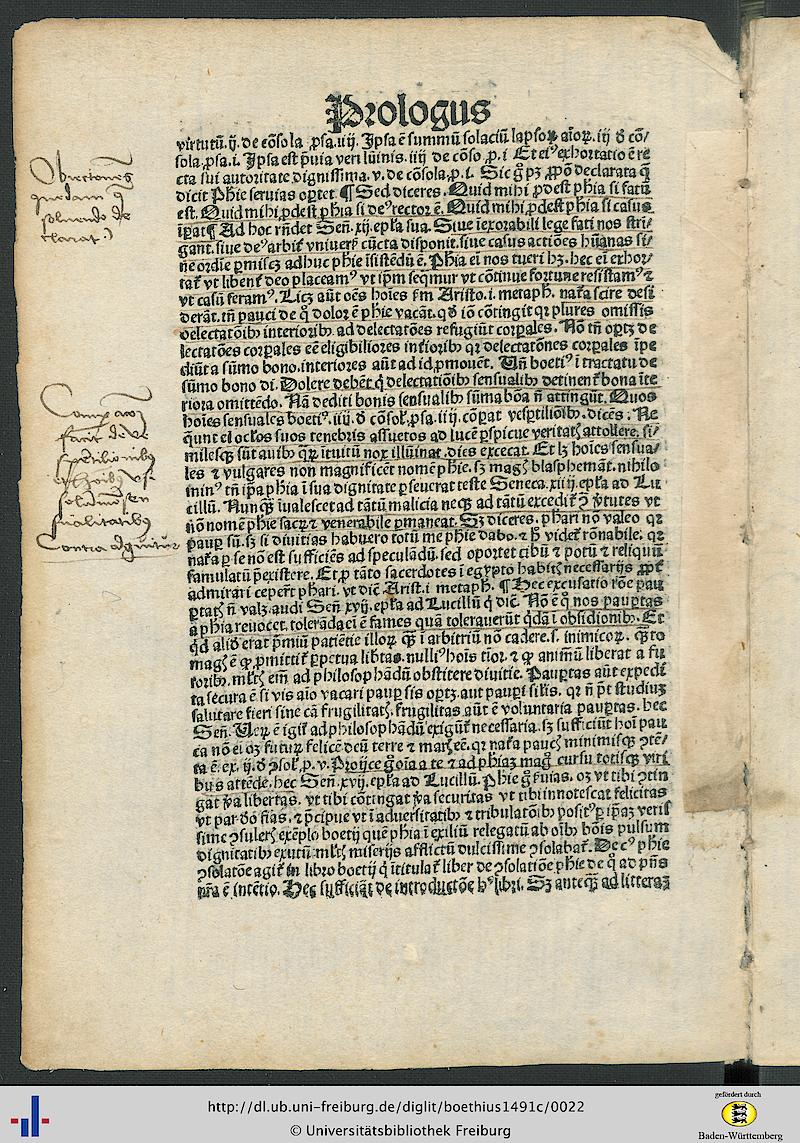 Prologus
virtutū. ij. de cōsola ꝓsa. iiij. Ipsa ē summū solaciū lapsoꝝ aīoꝝ. iij d̄ cō/
sola. ꝓsa. i. Ipsa est p̄uia veri lūinis. iiij de cōso. ꝓ. i Et ei⁹ exhortatio ē re
cta sui autoritate dignissima. v. de cōsola. ꝓ. i. Sic g̊ pꝫ declarata
dicit Phie seruias oꝑtet ¶ Sed diceres. Quid mihi ꝓdest phia si fatū
est. Quid mihi ꝓdest phia si de⁹ rector ē. Quid mihi ꝓdest phia si casus
īꝑat ¶ Ad hoc rn̄det Señ. xij. epl̄a sua. Siue īexorabili lege fati nos stri/
gant. siue de⁹ arbiť vniuersi cūcta disponit. siue casus actiōes hūanas si/
ne ordīe ꝑmiscꝫ adhuc phie īsistēdū ē. Phia ei nos tueri hꝫ. hec ei exhor/
tať vt libenť deo placeam⁹ vt ip̄m seq̄mur vt cōtinue fortune resistam⁹ ⁊
vt casū feram⁹. Licꝫ aūt oēs hoīes ẜm Aristo. i. metaph̄. naťa scire desi
derāt. tn̄ pauci de q̊ dolor ē phie vacāt. qđ iō cōtingit qr plures omissis
delectatōibꝫ interioribꝫ ad delectatōes refugiūt corꝑales. Nō tn̄ oꝑtꝫ de
lectatōes corꝑales eē eligibiliores inťioribꝫ qr delectatōnes corꝑales īpe
diūt a sūmo bono. interiores aūt ad id ꝓmouēt. Uñ boeti⁹ ī tractatu de
sūmo bono di. Dolere debēt q̇ delectatiōibꝫ sensualibꝫ detinenť bona īte
riora omittēdo. Nā dediti bonis sensualibꝫ sūma bōa n̄ attingūt. Quos
hoīes sensuales boeti⁹. iiij. d̄ cōsoł. ꝓsa. iij. cōꝑat vesꝑtiliōibꝫ. dicēs. Ne
q̄unt ei ocłos suos tenebris assuetos ad lucē ꝑspicue veritatꝭ attollere. si/
milesqꝫ sūt auibꝫ qꝝ ītuitū nox illūinat. dies excecat. Et lꝫ hoīes sensua/
les ⁊ vulgares non magnificēt nomē phie. sꝫ magꝭ blasphemāt. nihilo
min⁹ tn̄ ip̄a phia ī sua dignitate ꝑseuerat teste Seneca. xiiij. epl̄a ad Lu
cillū. Nunqꝫ īualescet ad tātū malicia neqꝫ ad tātū excediť ꝯ̄ v̄tutes vt
nō nomē phie sacꝝ ⁊ venerabile ꝑmaneat. Sꝫ diceres. phari nō valeo qr
pauꝑ sū. sꝫ si diuitias habuero totū me phie dabo. ⁊ h̊ videť rōnabile. qr
naťa ꝑ se nō est sufficiēs ad speculādū. sed oportet cibū ⁊ potū ⁊ reliquū
famulatū p̄existere. Et ꝓp tāto sacerdotes ī egypto habitꝭ necessarijs
admirari ceperť phari. vt diē. Arist. i metaph̄. ¶ Hec excusatio rōe pau
ꝑtatꝭ n̄ valꝫ. audi Señ xvij. epl̄a ad Lucillū q̇ diē. Nō ē q̊ nos pauꝑtas
a phia reuocet. tolerāda ei ē fames quā tolerauerūt q̇dā ī obsidionibꝫ. Et
qđ aliđ erat p̄miū patiētie illoꝝ qꝫ ī arbitriū nō cadere. s. inimicoꝝ. qꝫto
magꝭ ē ꝙ ꝓmittiť ꝑpetua libtas. nulli⁹ hoīs tīor. ⁊ ꝙ animū liberat a fu
roribꝫ. młtꝭ eīm ad philosophādū obstitere diuitie. Pauꝑtas aūt expedi
ta secura ē si vis aīo vacari pauꝑ sis oꝑtꝫ. aut pauꝑi siłis. qr n̄ p̄t studiuꝫ
salutare fieri sine cā frugilitatꝭ. frugilitas aūt ē voluntaria pauꝑtas. hec
Señ. Uerꝫ ē igiť ad philosophādū exiguť necessaria. sꝫ sufficiūt hoī pau
ca nō ei oꝫ futuꝝ felicē deū terre ⁊ marꝭ eē. qr naťa paucꝭ minimisqꝫ ꝯtē/
ta ē. ex. ij. d̄ ꝯsoł. ꝓ. v. Proijce g̊ oīa a te ⁊ ad phiaꝫ mag̊ cursu totisqꝫ viri
bus attēde. hec Señ. xvij. epl̄a ad Lucillū. Phie g̊ ẜuias. oꝫ vt tibi ꝯtin
gat v̄a libertas. vt tibi cōtingat v̄a securitas vt tibi innotescat felicitas
vt par dō fias. ⁊ p̄cipue vt ī aduersitatibꝫ ⁊ tribulatōibꝫ posit⁹ ꝑ ip̄aꝫ veris
sime ꝯsulerꝭ exēplo boetij quē phia ī exiliū relegatū ab oībꝫ bōis pulsum
dignitatibꝫ exutū młtꝭ miserijs afflictū dulcissime ꝯsolabať. De c⁹ phie
ꝯsolatōe agiť in libro boetij q̇ ītitulať liber de ꝯsolatiōe phie de q̊ ad p̄n̄s
nr̄a ē intētio. Hec sufficiāt de introductōe h⁹ libri. Sꝫ anteqꝫ ad litteraꝫ
Obiectiones
quedam
soluendo de
clarat
facit de ve
spertilionibus
sensualitatibus
Contra
http://dl.ub.uni-freiburg.de/diglit/boethius1491c/0022
© Universitätsbibliothek Freiburg
gefördert durch
Baden-Württemberg